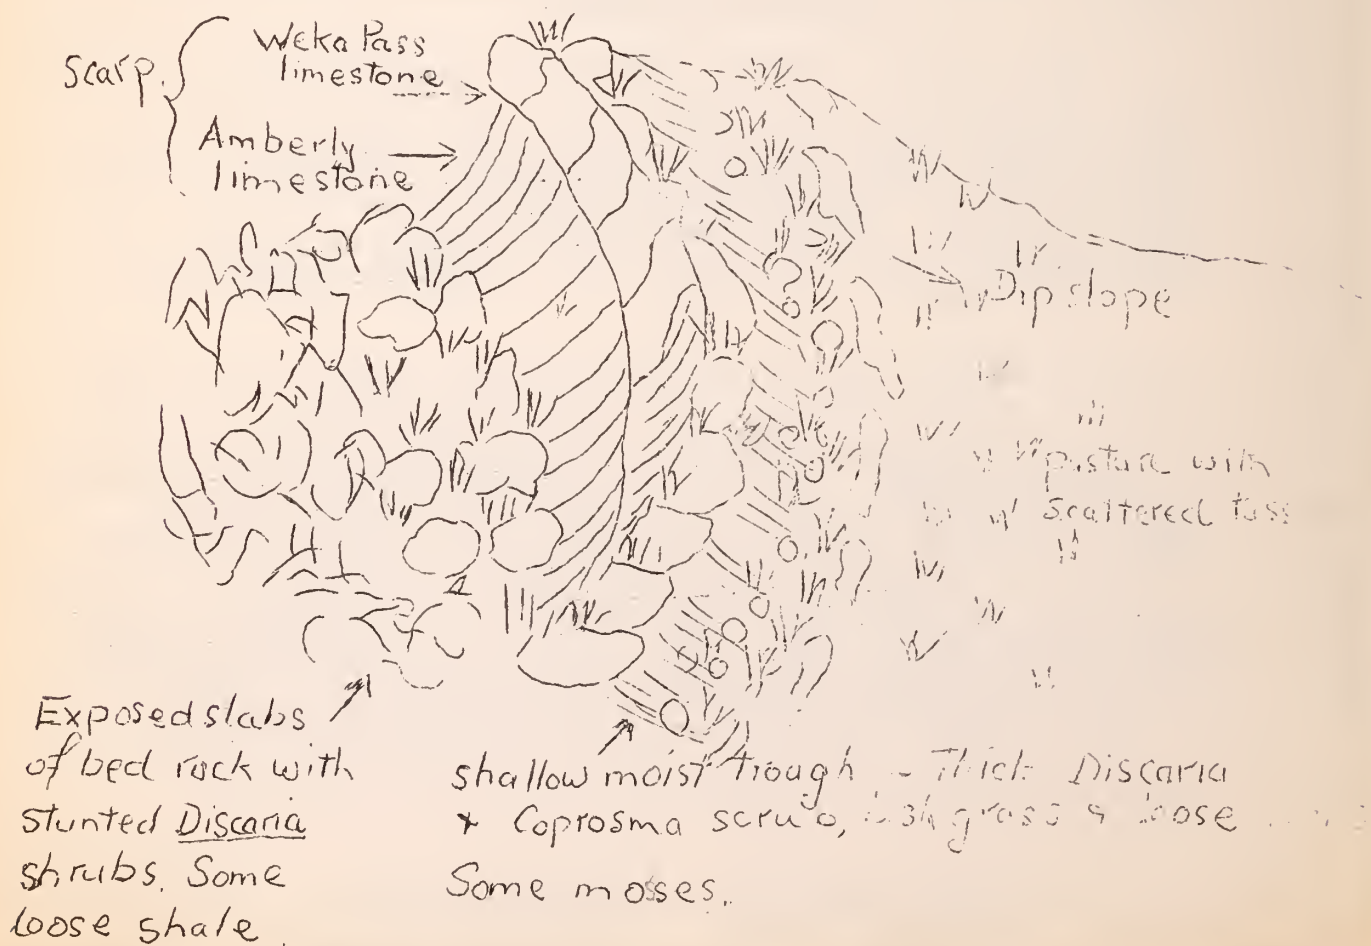 Scarp.
Weka Pass
limestone
Amberly
limestone
Dip slope
pasture with
scattered
Exposed slabs
of bed rock with
stunted Discaria
shrubs. Some
loose shale.
shallow moist trough - Thick Discaria
+ Coprosma scrub, grass & loose
Some mosses.